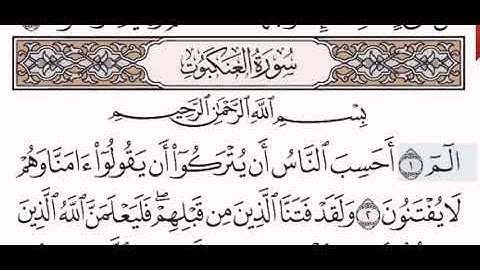 سُورَةُ العَنكَبُوتِ
بِسْمِ ٱللَّهِ ٱلرَّحْمَٰنِ ٱلرَّحِيمِ
الٓمٓ ١ أَحَسِبَ ٱلنَّاسُ أَن يُتْرَكُوٓا۟ أَن يَقُولُوٓا۟ ءَامَنَّا وَهُمْ
لَا يُفْتَنُونَ ٢ وَلَقَدْ فَتَنَّا ٱلَّذِينَ مِن قَبْلِهِمْ ۖ فَلَيَعْلَمَنَّ ٱللَّهُ ٱلَّذِينَ